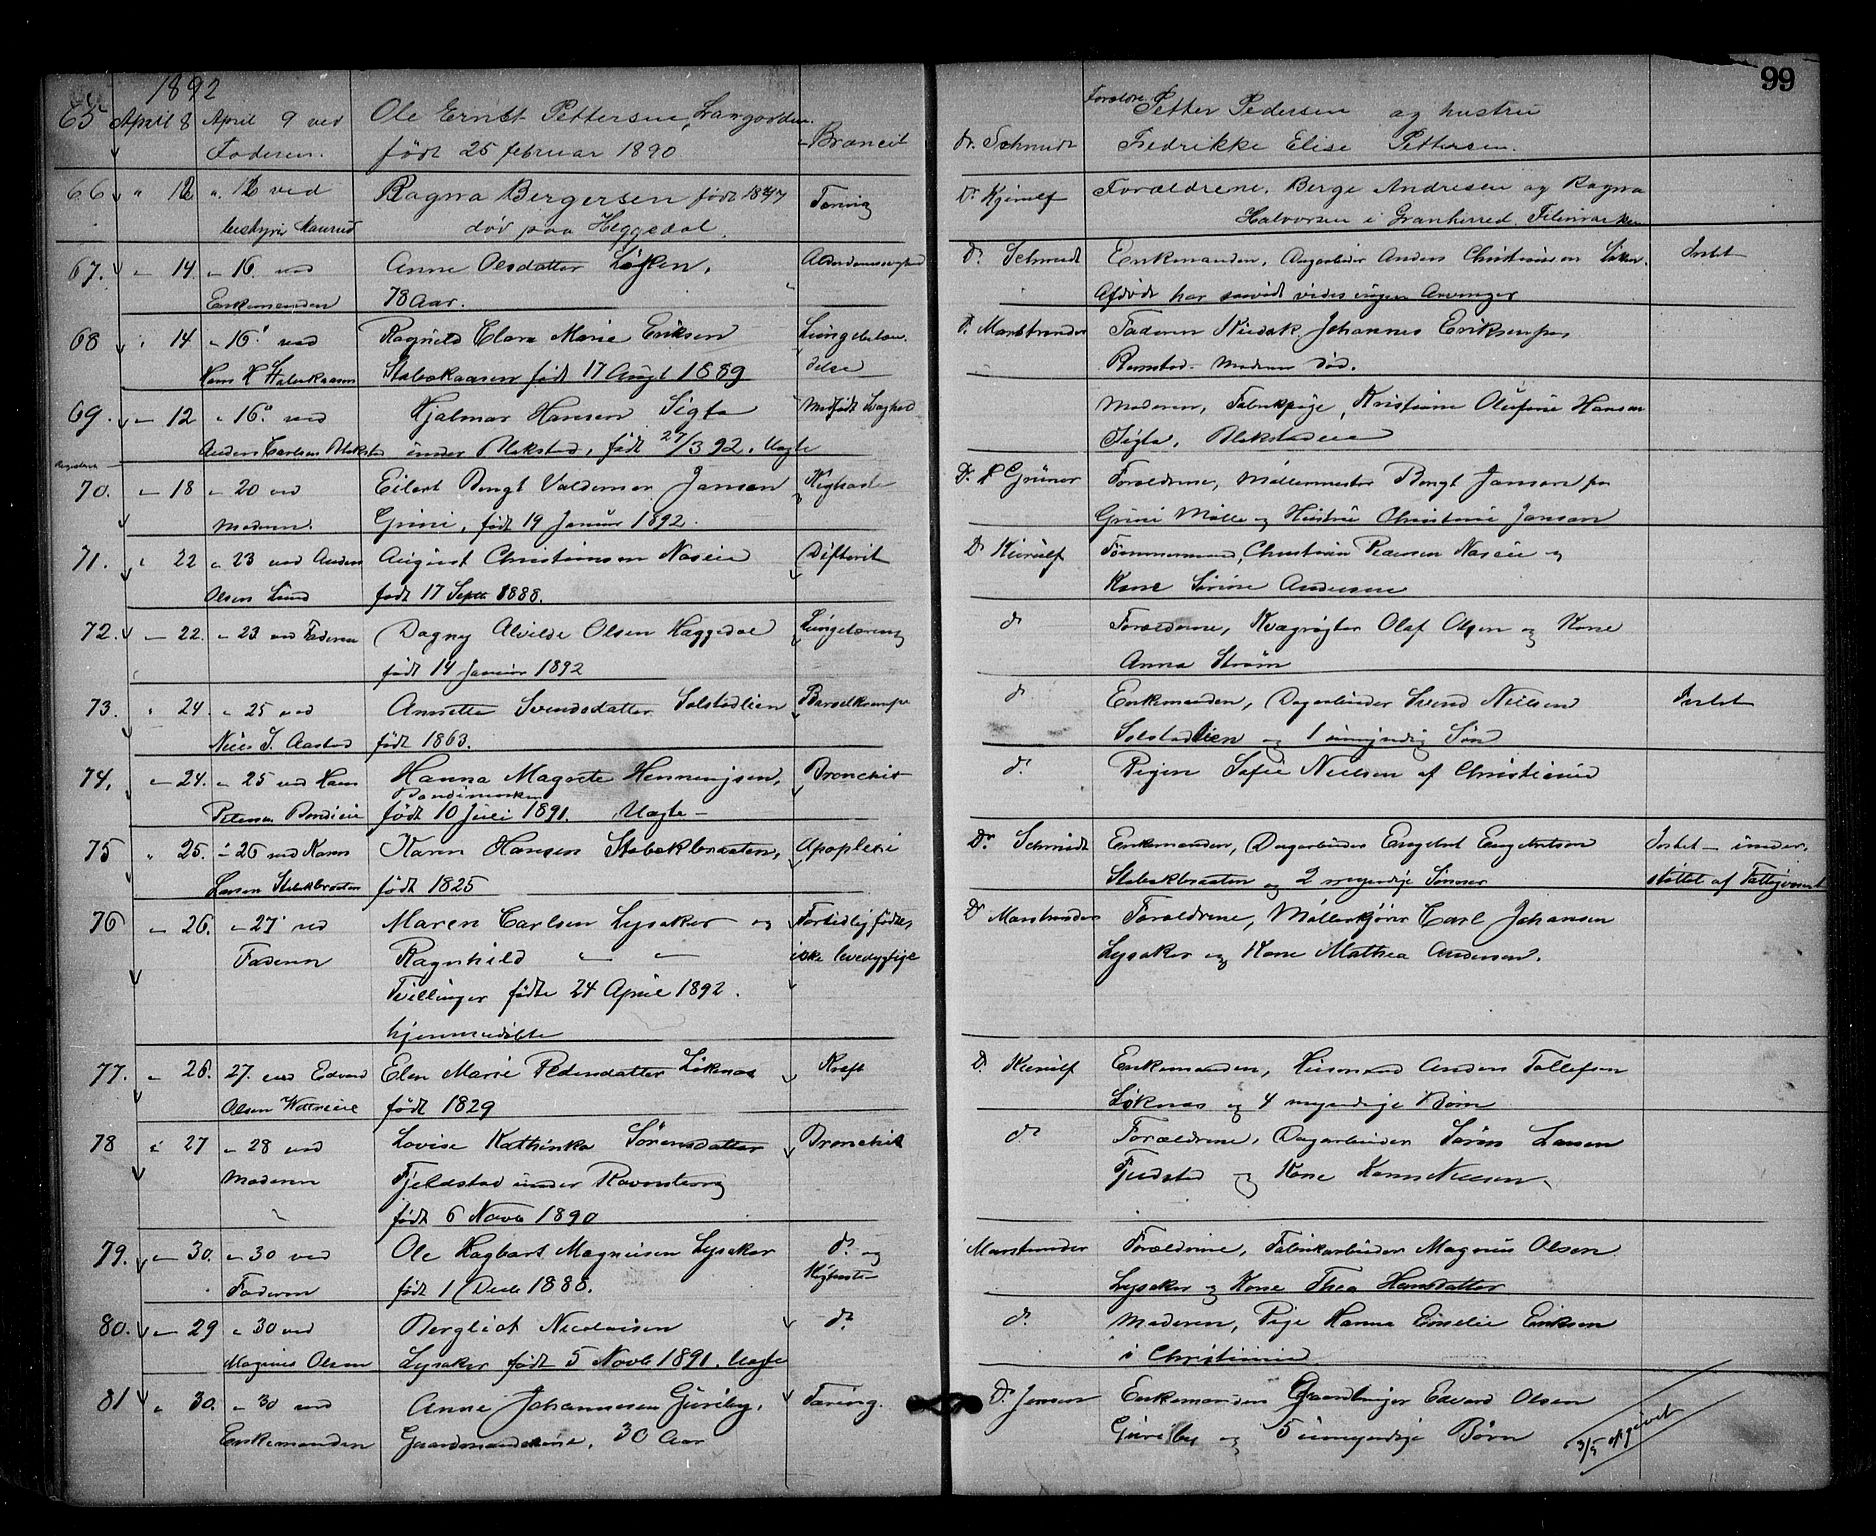 1892
99
65 April 8 April 9 ved Ole Ernst Pettersen, Langodden. Broncit dr. Schmidt Forældre Petter Pedersen og hustru
Faderen. født 25 februar 1890 Fredrikke Elise Pettersen.
66 " 12 " 12 ved Ragna Bergersen født 1847 Tæring Dr Kjerulf Forældrene, Berge Andresen og Ragna
bestyrer død paa Heggedal. Halvorsen i Granherred Telemarken
67. " 14. " 16 ved Anne Olsdatter Løken, Alderdomssvaghed dr. Schmidt Enkemanden, Dagarbeider Anders Christiansen Løken. Intet
Enkemanden 78 Aar. Afdøde har saavidt vides ingen Arvinger
68 " 14 " 16 ved Ragnild Clara Marie Eriksen Lungebetæn- Dr. Marstrander Faderen Johannes Eriksen paa
Hans H Stabekaasen Stabekaasen født 17 Augt 1889 delse Ramstad. Moderen død.
69. " 12 " 16 ved Hjalmar Hansen Sigta Medfødt Svaghed Moderen, Fabrikpige, Kristine Olufine Hansen
Anders Carlsen Blakstad under Blakstad, født 27/3 92. Uægte Sigta, Blakstadeie
70. " 18 " 20 ved Eilert Bengt Valdemar Janson Kighoste Dr. Grüner Forældrene, Møllermester Bengt Janson paa
Moderen. Grini, født 19 Januar 1892. Grini Mølle og Hustru Christine Janson
71. " 22 " 23 ved Anders August Christiansen Næseie Difterit Dr Kierulf Tømmermand, Christian Pedersen Næseie og
Olsen Lund født 17 Septb 1888. Kone Sørine Andersen
72. " 22. " 23 ved Faderen Dagny Alvilde Olsen Heggedal Lungetæring do Forældrene, Kvægrøgter Olaf Olsen og Kone
født 14 Januar 1892 Anna Strøm
73. " 24. " 25 ved Annette Svendsdatter Solstadlien Barselkrampe do Enkemanden, Dagarbeider Svend Nielsen Intet
Niels J. Aastad født 1863. Solstadlien og 1 umyndig Søn
74. " 24. " 25 ved Hans Hanna Magrete Henningsen, Bronchit do. Pigen Sofie Nielsen af Christiania
Petersen født 10 Juli 1891. Uægte –
75 " 25. " 26 ved Karen Karen Hansen Stabekbraaten, Apoplexi Dr. Schmidt Enkemanden, Dagarbeider Engebret Engebretsen Intet – under-
Larsen Stabekbraaten født 1825 Stabekbraaten og 2 myndige Sønner støttet af Fattigvæsenet
76 " 26. " 27 ved Maren Carlsen Lysaker og Fortidlig fødte, Dr Marstrander Forældrene, Møllerkjører Carl Johansen
Faderen Ragnhild " " ikke levedygtige Lysaker og Kone Mathea Andersen.
Tvillinger fødte 24 April 1892.
hjemmedøbte
77. " 26. 27. ved Edvard Elen Marie Pedersdatter Løkenæs Kræft Dr. Kierulf Enkemanden, Husmand Anders Tollefsen
Olsen født 1829 Løkenæs og 4 myndige Børn
78 " 27 " 28 ved Lovise Kathinka Sørensdatter Bronchit do Forældrene, Dagarbeider Søren Larsen
Moderen Fjeldstad under Ravnsborg Fjeldstad og Kone Karen Nielsen.
født 6 Novb 1890
79. " 30. " 30 ved Ole Hagbart Magnusen Lysaker do og Marstrander Forældrene, Fabrikarbeider Magnus Olsen
Faderen født 1 Decb 1888. Kighoste Lysaker og Kone Thea Hansdatter
80. " 29 " 30 ved Bergliot Nicolaisen do do. Moderen, Pige Hanna Emelie Eriksen
Magnus Olsen Lysaker født 5 Novb 1891. Uægte i Christiania
81 " 30. " 30 ved Anne Johannesen Guriby, Tæring. Dr. Jensen Enkemanden Gaardbruger Edvard Olsen
Enkemanden Gaardmandskone, 30 Aar Guriby og 5 umyndige Børn 3/5 opgivet